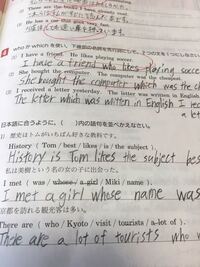 (2) She has a car that
4 who か which を使い、下線部の名詞を先行詞にして、2つの文を1つにしなさい
(1) I have a friend. He likes playing soccer.
I have a friend who likes playing socce
(2) She bought the computer. The computer was the cheapest
She bought the computer which was the ch
(3) I received a letter yesterday. The letter was written in English.
The letter which was written in English I rece
日本語に合うように、( )内の語句を並べかえなさい。
1) 歴史はトムがいちばん好きな教科です。
History ( Tom / best / likes / is / the subject )
History is Tom likes the subject bes
私は美樹という名の女の子に出会った。
I met ( was / whose / a girl / Miki / name ).
I met a girl whose name was
京都を訪れる観光客は多い。
There are ( who / Kyoto / visit / tourists / a lot of ).
There are a lot of tourists who v